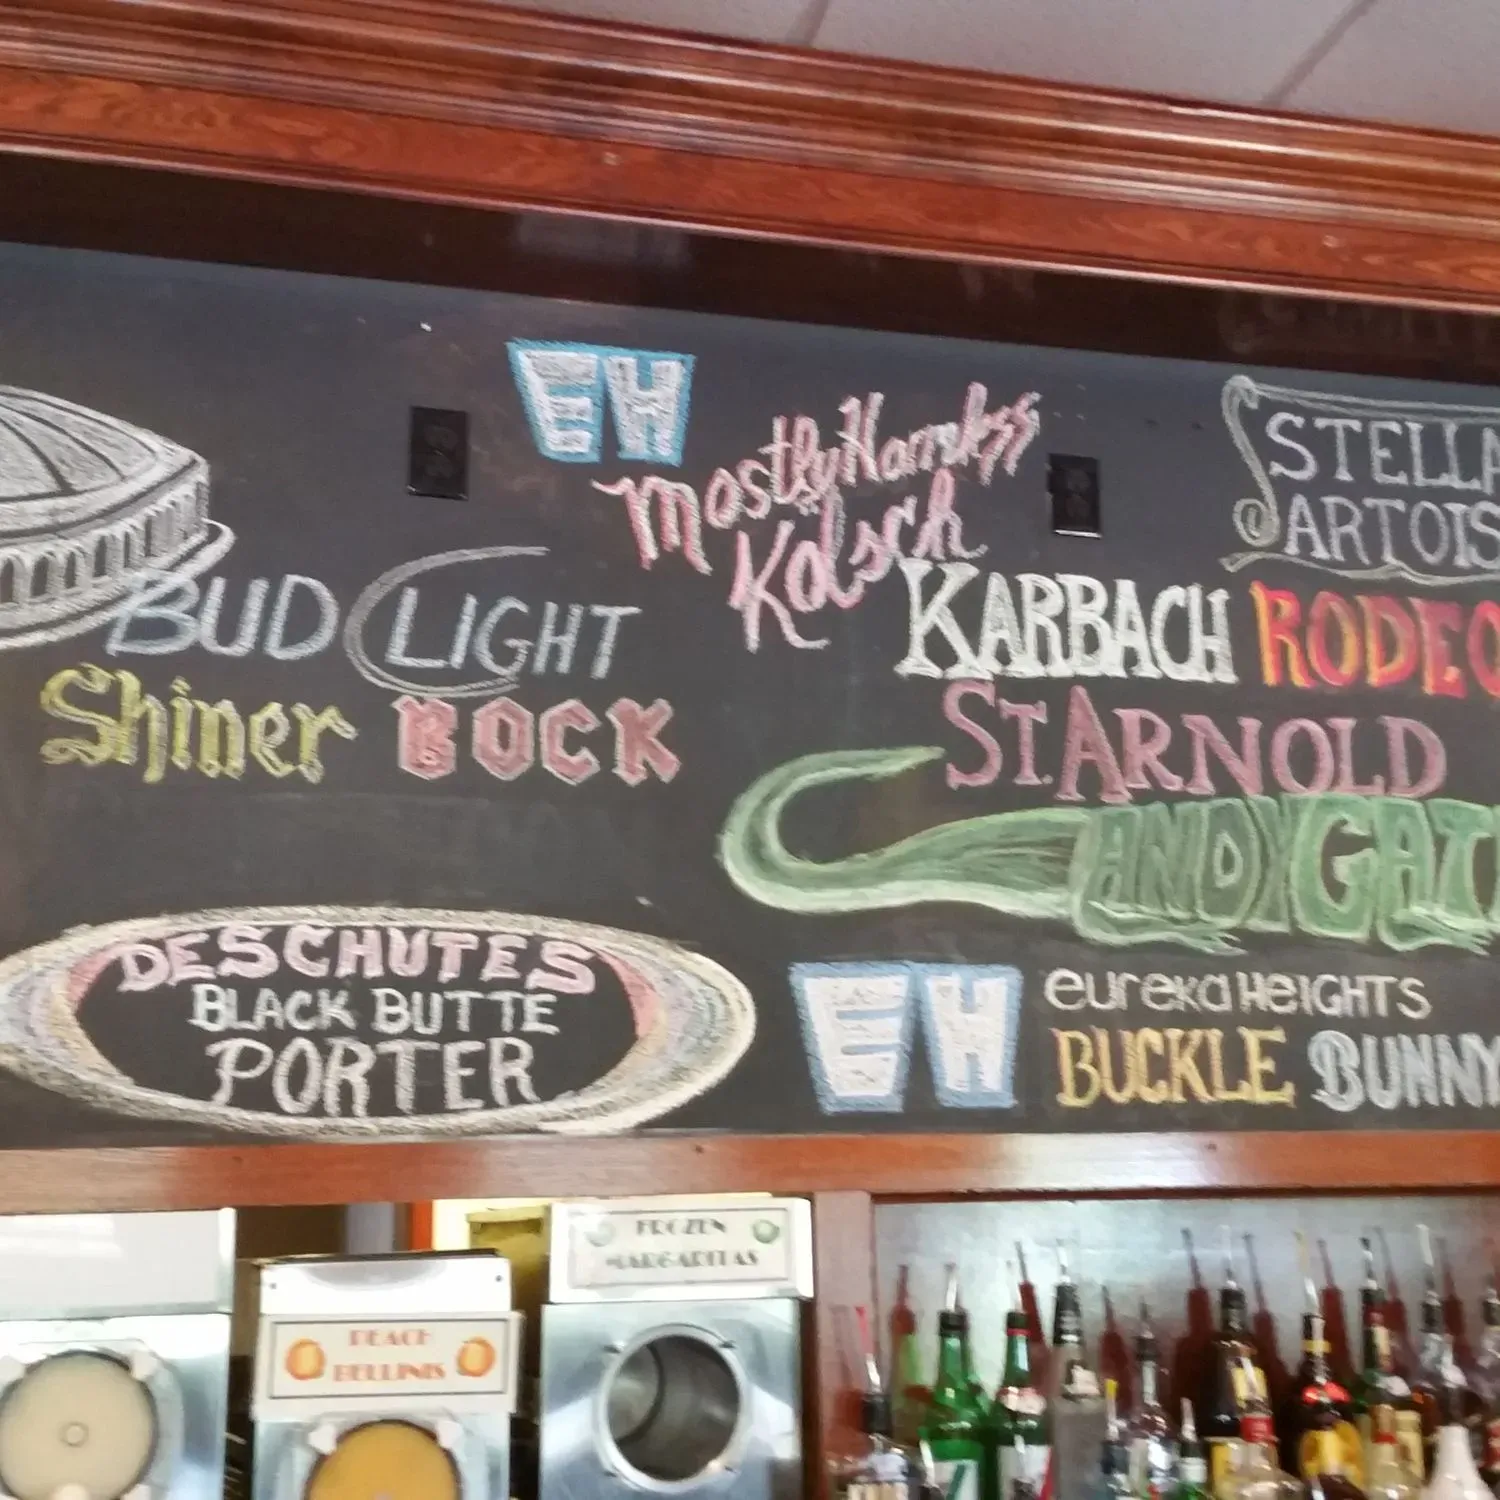 EH
Mostly Harmless
Kolsch
STELLA
ARTOIS
BUD LIGHT
KARBACH RODEO
Shiner BOCK
ST. ARNOLD
ANDYGAT
DESCHUTES
BLACK BUTTE
PORTER
EH
eureka HEIGHTS
BUCKLE BUNNY
FROZEN
MARGARITAS
PEACH
BELLINIS